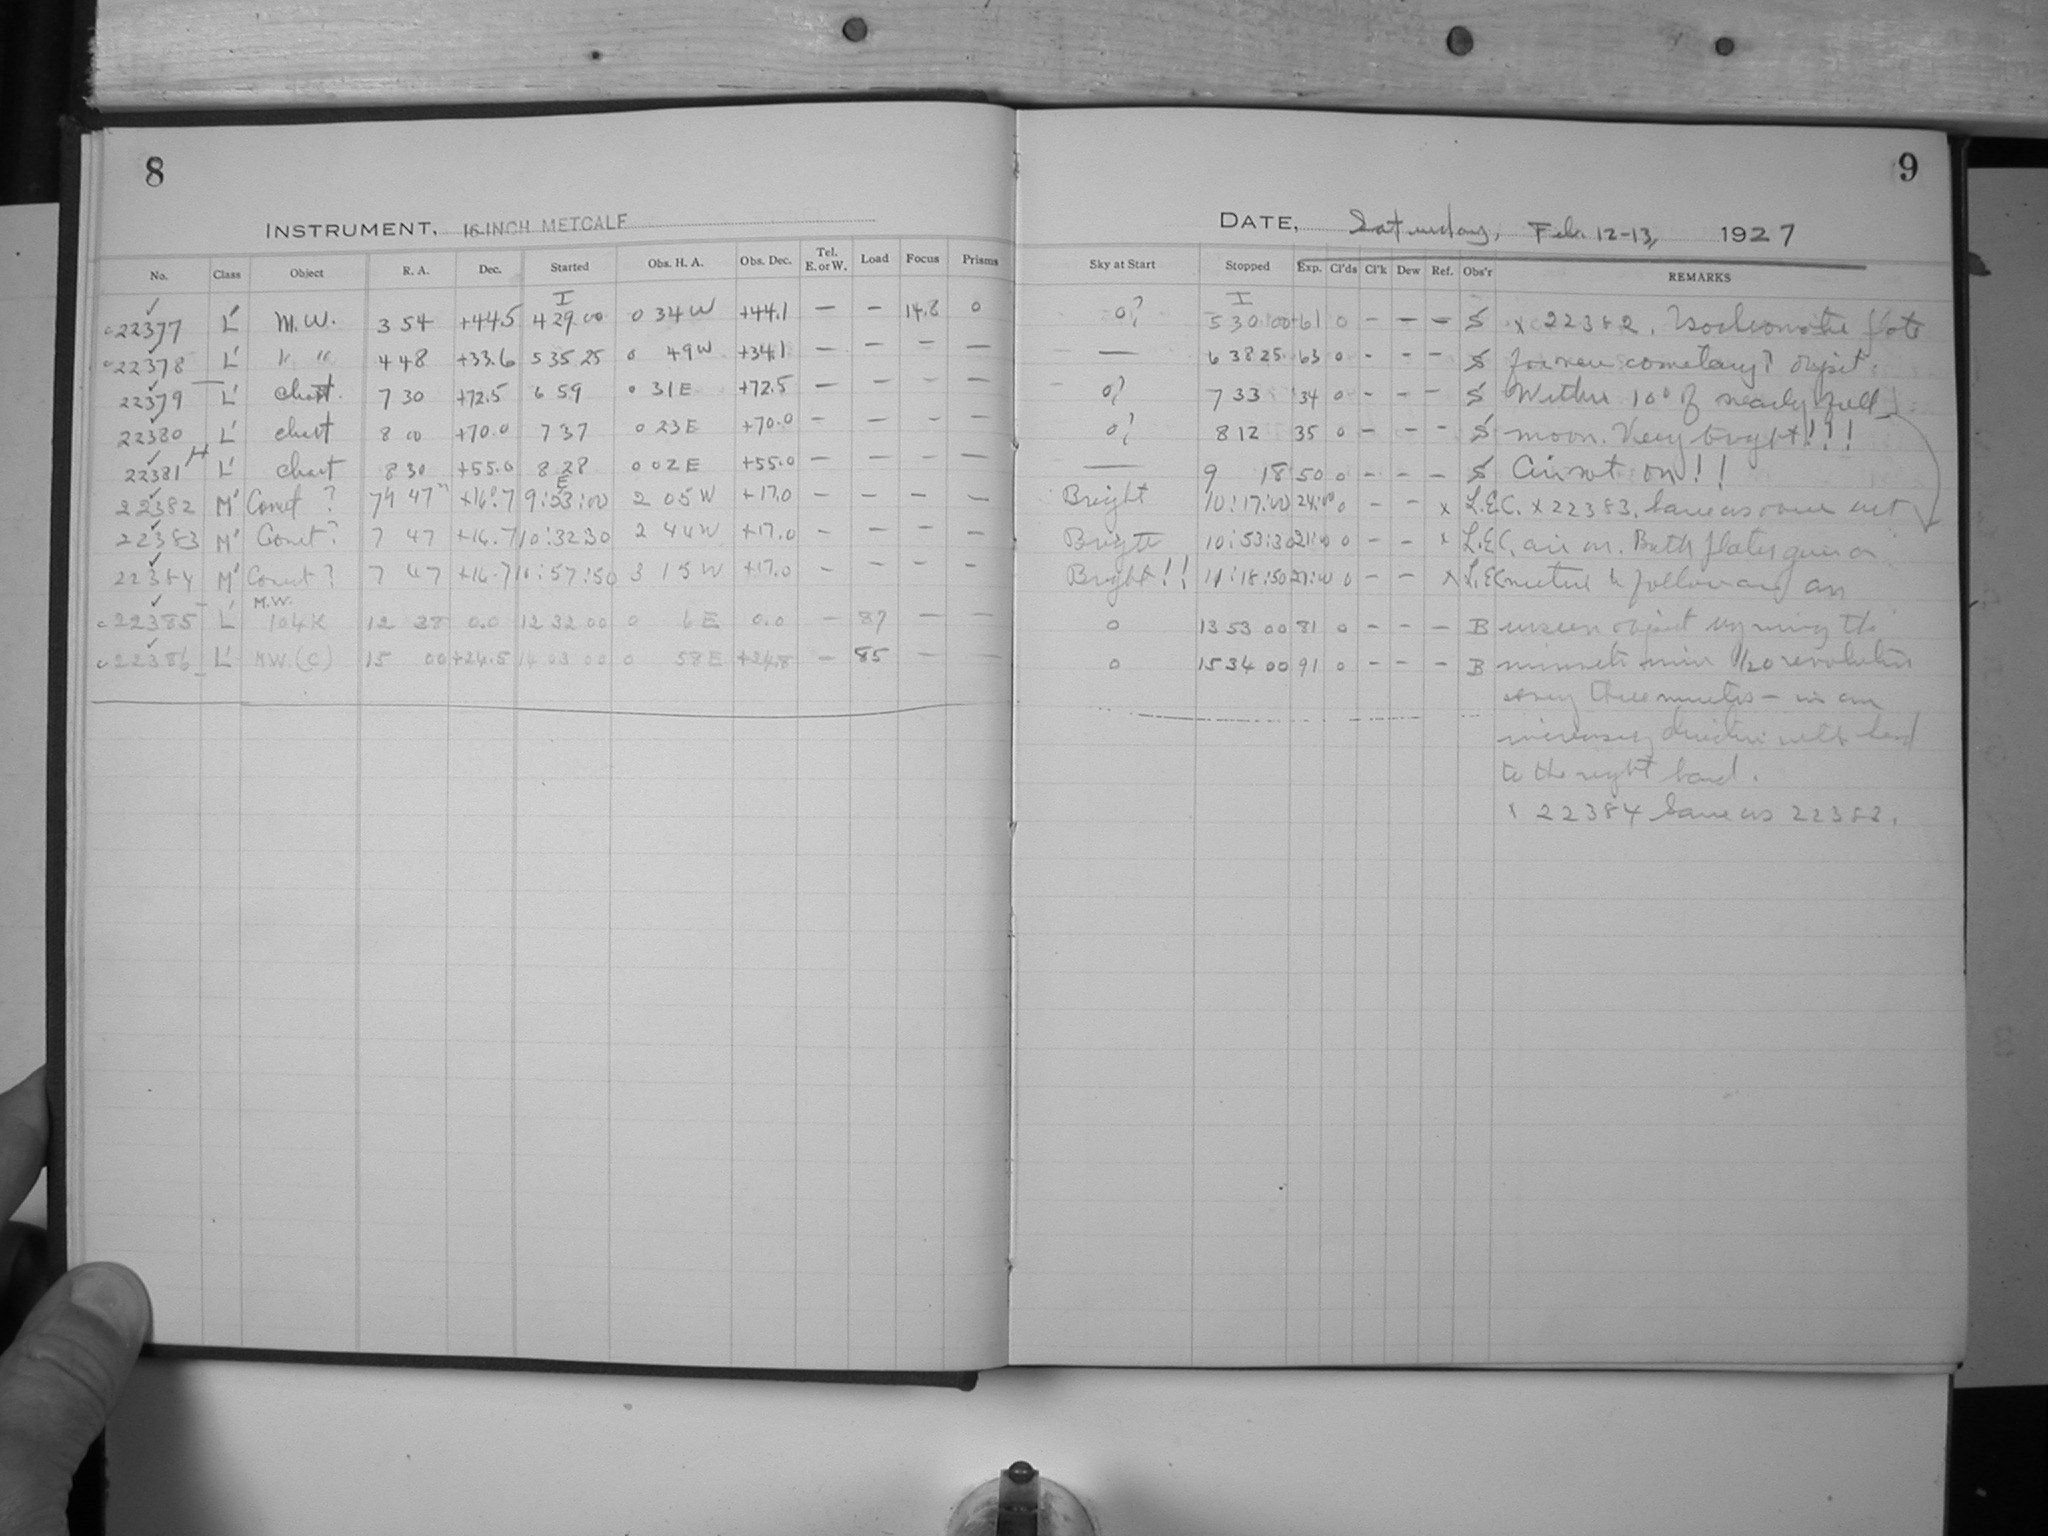 8
INSTRUMENT, 16-INCH METCALF
No. Class Object R. A. Dec. Started Obs. H. A. Obs. Dec. Tel. E. or W. Load Focus Prisms
I
c22377 L' M.W. 3 54 +44.5 4 29 00 0 34 W +44.1 — — 14.8 0
c22378 L' " " 4 48 +33.6 5 35 25 0 49 W +34.1 — — — —
22379 L' chart. 7 30 +72.5 6 59 0 31 E +72.5 — — — —
22380 L' chart 8 00 +70.0 7 37 0 23 E +70.0 — — — —
22381 H L' chart 8 30 +55.0 8 28 0 02 E +55.0 — — — —
E
22382 M' Comet ? 7h 47m +16.7 9:53:00 2 05 W +17.0 — — — —
22383 M' Comet ? 7 47 +16.7 10:32 30 2 44 W +17.0 — — —
22384 M' Comet ? 7 47 +16.7 :57:50 3 15 W +17.0 — — — —
M.W.
c22385 L' 104K 12 28 0.0 12 32 00 0 6 E 0.0 — 87 — —
c22386 L' MW (C) 15 00 +24.5 14 03 00 0 58 E +24.8 — 85 — —
9
DATE, Saturday, Feb. 12-13, 1927
Sky at Start Stopped Exp. Cl'ds Cl'k Dew Ref. Obs'r REMARKS
I
0? 5 30 00 61 0 — — — S x 22382. Isochromatic plate
— 6 38 25 63 0 - - - S for new cometary? object.
0? 7 33 34 0 - - - S Within 10° of nearly full
0? 8 12 35 0 - - - S moon. Very bright!!!
— 9 18 50 0 - - - S Air not on!!
Bright 10:17:00 24:00 0 - - x L.E.C. x 22383. Same as over
Bright 10:53:30 21:00 0 - - x L.E.C. air on. Both plates
Bright!! 11:18:50 21:00 0 - - x L.E.C. following an
0 13 53 00 81 0 - - - B unseen object by the
0 15 34 00 91 0 - - - B 1/20 revolution
every three minutes — in an
increasing direction
to the right hand.
x 22384 Same as 22383.